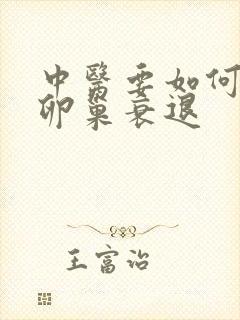 中醫要如何
卵巢衰退
王富治